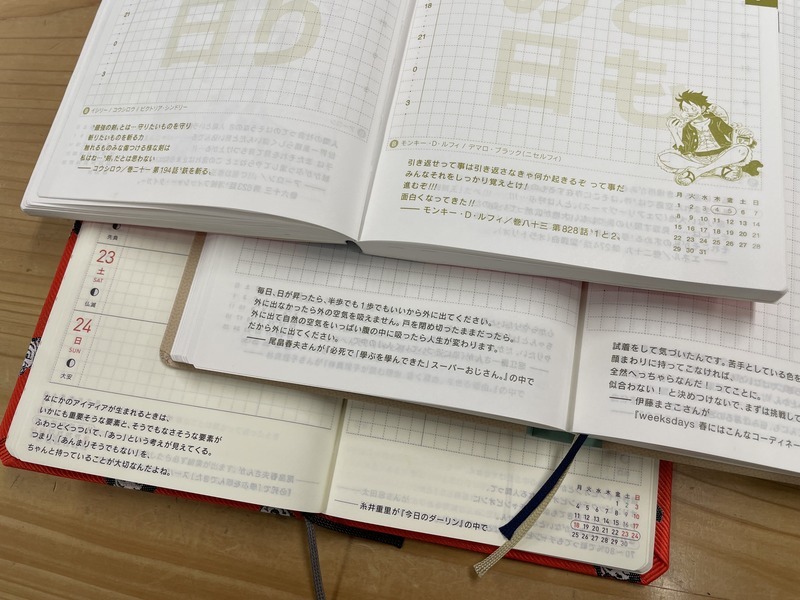 21
0
3
イジリー / コウシロウ / ビクトリア・シンドリー
“最強の剣”とは…守りたいものを守り
斬りたいものを斬る力
触れるものみな傷つける様な剣は
私はな…“剣”だとは思わない
── コウシロウ／巻二十一 第194話“鉄を斬る”
18
21
0
3
ども
の日
モンキー・D・ルフィ / デマロ・ブラック(ニセルフィ)
引き返せって事は引き返さなきゃ何か起きるぞ って事だ
みんなそれをしっかり覚えとけ!
進むぞ!!!
面白くなってきた!!
── モンキー・D・ルフィ／巻八十三 第828話“1と2”
月 火 水 木 金 土 日
1 2 3 4 5 6 7
8 9 10 11 12 13 14
15 16 17 18 19 20 21
22 23 24 25 26 27 28
29 30 31
先負
23
土
SAT
仏滅
24
日
SUN
大安
毎日、日が昇ったら、半歩でも1歩でもいいから外に出てください。
外に出なかったら外の空気を吸えません。戸を閉め切ったままだったら。
外に出て自然の空気をいっぱい腹の中に吸ったら人生が変わります。
だから外に出てください。
── 尾畠春夫さんが『必死で「学ぶを学んできた」スーパーおじさん。』の中で
試着をして気づいたんです。苦手としている色を
顔まわりに持ってこなければ、
全然へっちゃらなんだ! ってことに。
似合わない! と決めつけないで、まずは挑戦して
── 伊藤まさこさんが
『weeksdays 春にはこんなコーディネー
なにかのアイディアが生まれるときは、
いかにも重要そうな要素と、そうでもなさそうな要素が
ふわっとくっついて、「あっ」という考えが見えてくる。
つまり、「あんまりそうでもない」を、
ちゃんと持っていることが大切なんだよね。
── 糸井重里が『今日のダーリン』の中で
月 火 水 木 金 土 日
1 2 3
4 5 6 7 8 9 10
11 12 13 14 15 16 17
18 19 20 21 22 23 24
25 26 27 28 29 30